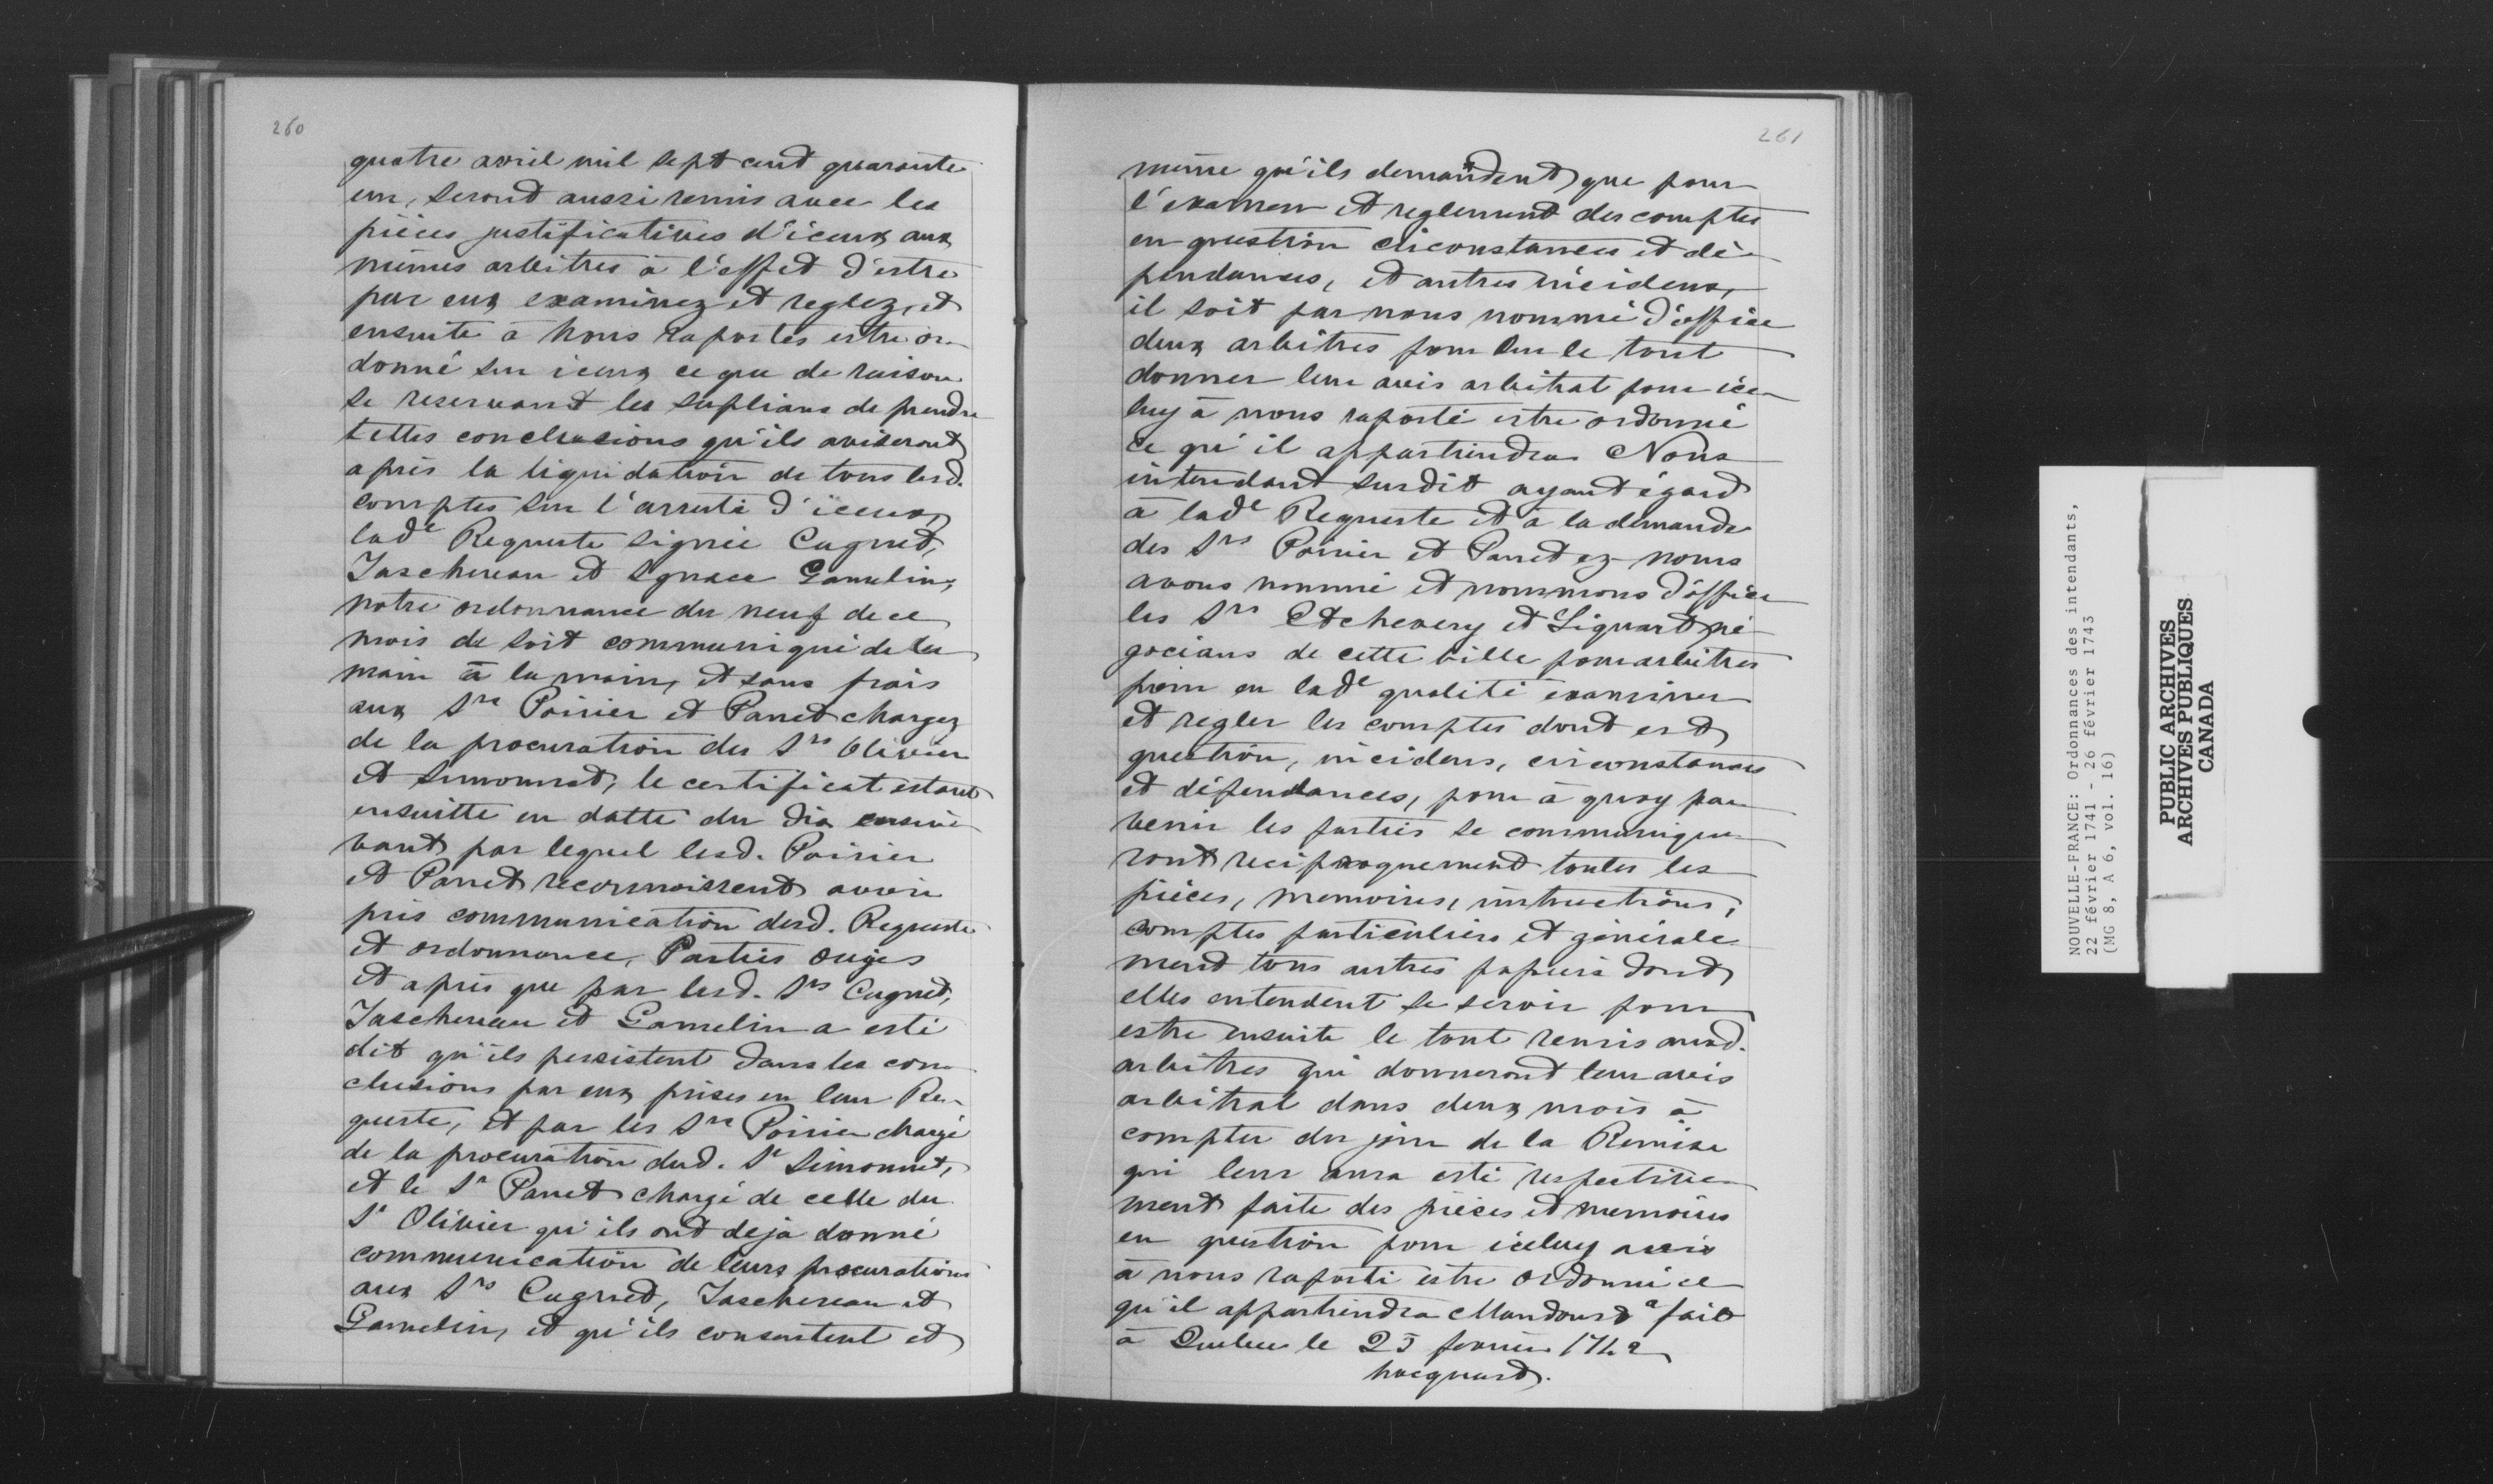 260
quatre avril mil sept cent quarante
un, seront aussi remis avec les
pièces justificatives d'iceux aux
mêmes arbitres à l'effet d'estre
par eux examinez et reglez, et
ensuite à Nous raportés estre or-
donné sur iceux ce que de raison
se reservant les suplians de prendre
telles conclusions qu'ils aviseront
après la liquidation de tous lesd.
comptes sur l'arresté d'iceux,
lade Requeste signée Cugnet,
Taschereau et Ignace Gamelin,
notre ordonnance du neuf de ce
mois de soit communiqué de la
main à la main, et sans frais
aux Srs Poirier et Panet chargez
de la procuration des Srs Olivier
et Simonnet, le certificat estant
ensuitte en datte du dix ensui-
vant par lequel lesd. Poirier
et Panet reconnoissent avoir
pris communication desd. Requeste
et ordonnance, Parties ouyes
et après que par lesd. Srs Cugnet,
Taschereau et Gamelin a esté
dit qu'ils persistent dans les con-
clusions par eux prises en leur Re-
queste, et par les Srs Poirier chargé
de la procuration dud. Sr Simonnet,
et le Sr Panet chargé de celle du
Sr Olivier qu'ils ont deja donné
communication de leurs procurations
aux Srs Cugnet, Taschereau et
Gamelin, et qu'ils consentent et
261
même qu'ils demandent que pour
l'examen et reglement des comptes
en question circonstances et dé-
pendances, et autres incidens,
il soit par nous nommé d'office
deux arbitres pour sur le tout
donner leur avis arbitral pour ice-
luy à nous raporté estre ordonné
ce qu'il appartiendra Nous
intendant susdit ayant égard
à lade Requeste et à la demande
des Srs Poirier et Panet ez-noms
avons nommé et nommons d'office
les Srs Etchevery et Liquart né-
gocians de cette ville pour arbitres
pour en lade qualité examiner
et regler les comptes dont est
question, incidens, circonstances
et dépendances, pour à quoy par-
venir les parties se communique-
ront reciproquement toutes les
pièces, memoires, instructions,
comptes particuliers et générale-
ment tous autres papiers dont
elles entendent se servir pour
estre ensuite le tout remis auxd.
arbitres qui donneront leur avis
arbitral dans deux mois à
compter du jour de la Remise
qui leur aura esté respective-
ment faite des pièces et memoires
en question pour iceluy avis
à nous raporté estre ordonné ce
qu'il appartiendra Mandons a fait
à Quebec le 25 fevrier 1742
hocquart.
NOUVELLE-FRANCE: Ordonnances des intendants,
22 février 1741 - 26 février 1743
(MG 8, A 6, vol. 16)
PUBLIC ARCHIVES
ARCHIVES PUBLIQUES
CANADA